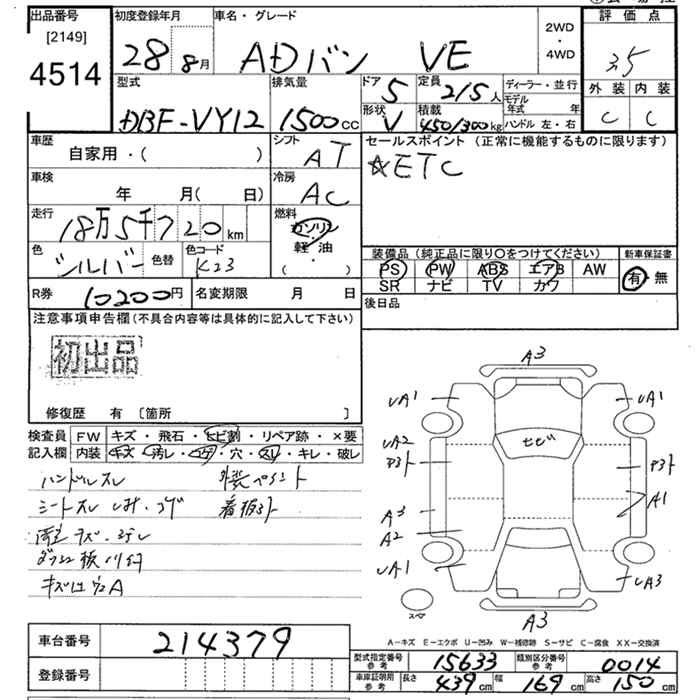 出品番号 初度登録年月 車名・グレード 2WD・4WD 評価点
[2149]
4514 28年8月 ADバン VE 3.5
型式 排気量 ドア 5 定員 2/5人 ディーラー・並行 外装 内装
DBF-VY12 1500cc 形状 V 積載 450/300kg モデル年式 年 C C
ハンドル 左・右
車歴 シフト セールスポイント (正常に機能するものに限ります)
自家用・( ) AT ☆ETC
車検 冷房
年 月( 日) AC
走行 燃料
18万5千720km ガソリン・軽油
色 シルバー 色替 色コード K23 ( )
装備品 (純正品に限り○をつけてください) 新車保証書
PS PW ABS エアB AW 有・無
SR ナビ TV カワ
R券 10200円 名変期限 月 日 後日品
注意事項申告欄(不具合内容等は具体的に記入して下さい)
初出品
修復歴 有 [箇所 ]
検査員 FW キズ・飛石・ヒビ割・リペア跡・×要
記入欄 内装 キズ・汚レ・コゲ・穴・スレ・キレ・破レ
ハンドルスレ 外装ペイント
シートスレ シミ・コゲ 看板跡
A3
UA1 UA1
UA2 ヒビ
A3 A1
A2
UA1 UA3
スペア A3
A-キズ E-エクボ U-凹み W-補修跡 S-サビ C-腐食 XX-交換済
車台番号 214379
登録番号
型式指定番号 参考 15633 類別区分番号 参考 0014
車車証明用 参考 長さ 439cm 幅 169cm 高さ 150cm